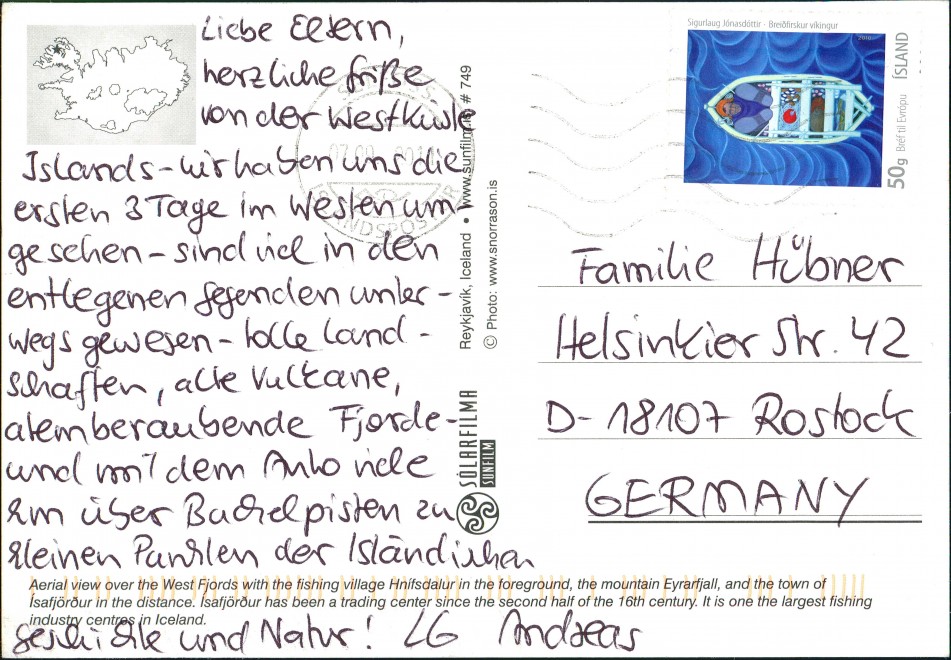 Liebe Eltern,
herzliche Grüße
von der Westküste
Islands - wir haben uns die
ersten 3 Tage im Westen um-
gesehen - sind viel in den
entlegenen Gegenden unter-
wegs gewesen - tolle Land-
schaften, alte Vulkane,
atemberaubende Fjorde -
und mit dem Auto viele
km über Buckelpisten zu
kleinen Punkten der Isländischen
Geschichte und Natur! LG Andreas
Aerial view over the West Fjords with the fishing village Hnífsdalur in the foreground, the mountain Eyrarfjall, and the town of
Ísafjörður in the distance. Ísafjörður has been a trading center since the second half of the 16th century. It is one the largest fishing
industry centres in Iceland.
SÓLARFILMA
SUNFILM
Reykjavík, Iceland • www.sunfilm.is # 749
© Photo: www.snorrason.is
Sigurlaug Jónasdóttir - Breiðfirskur víkingur
2010
50g Bréf til Evrópu ÍSLAND
Familie Hübner
Helsinkier Str. 42
D-18107 Rostock
GERMANY